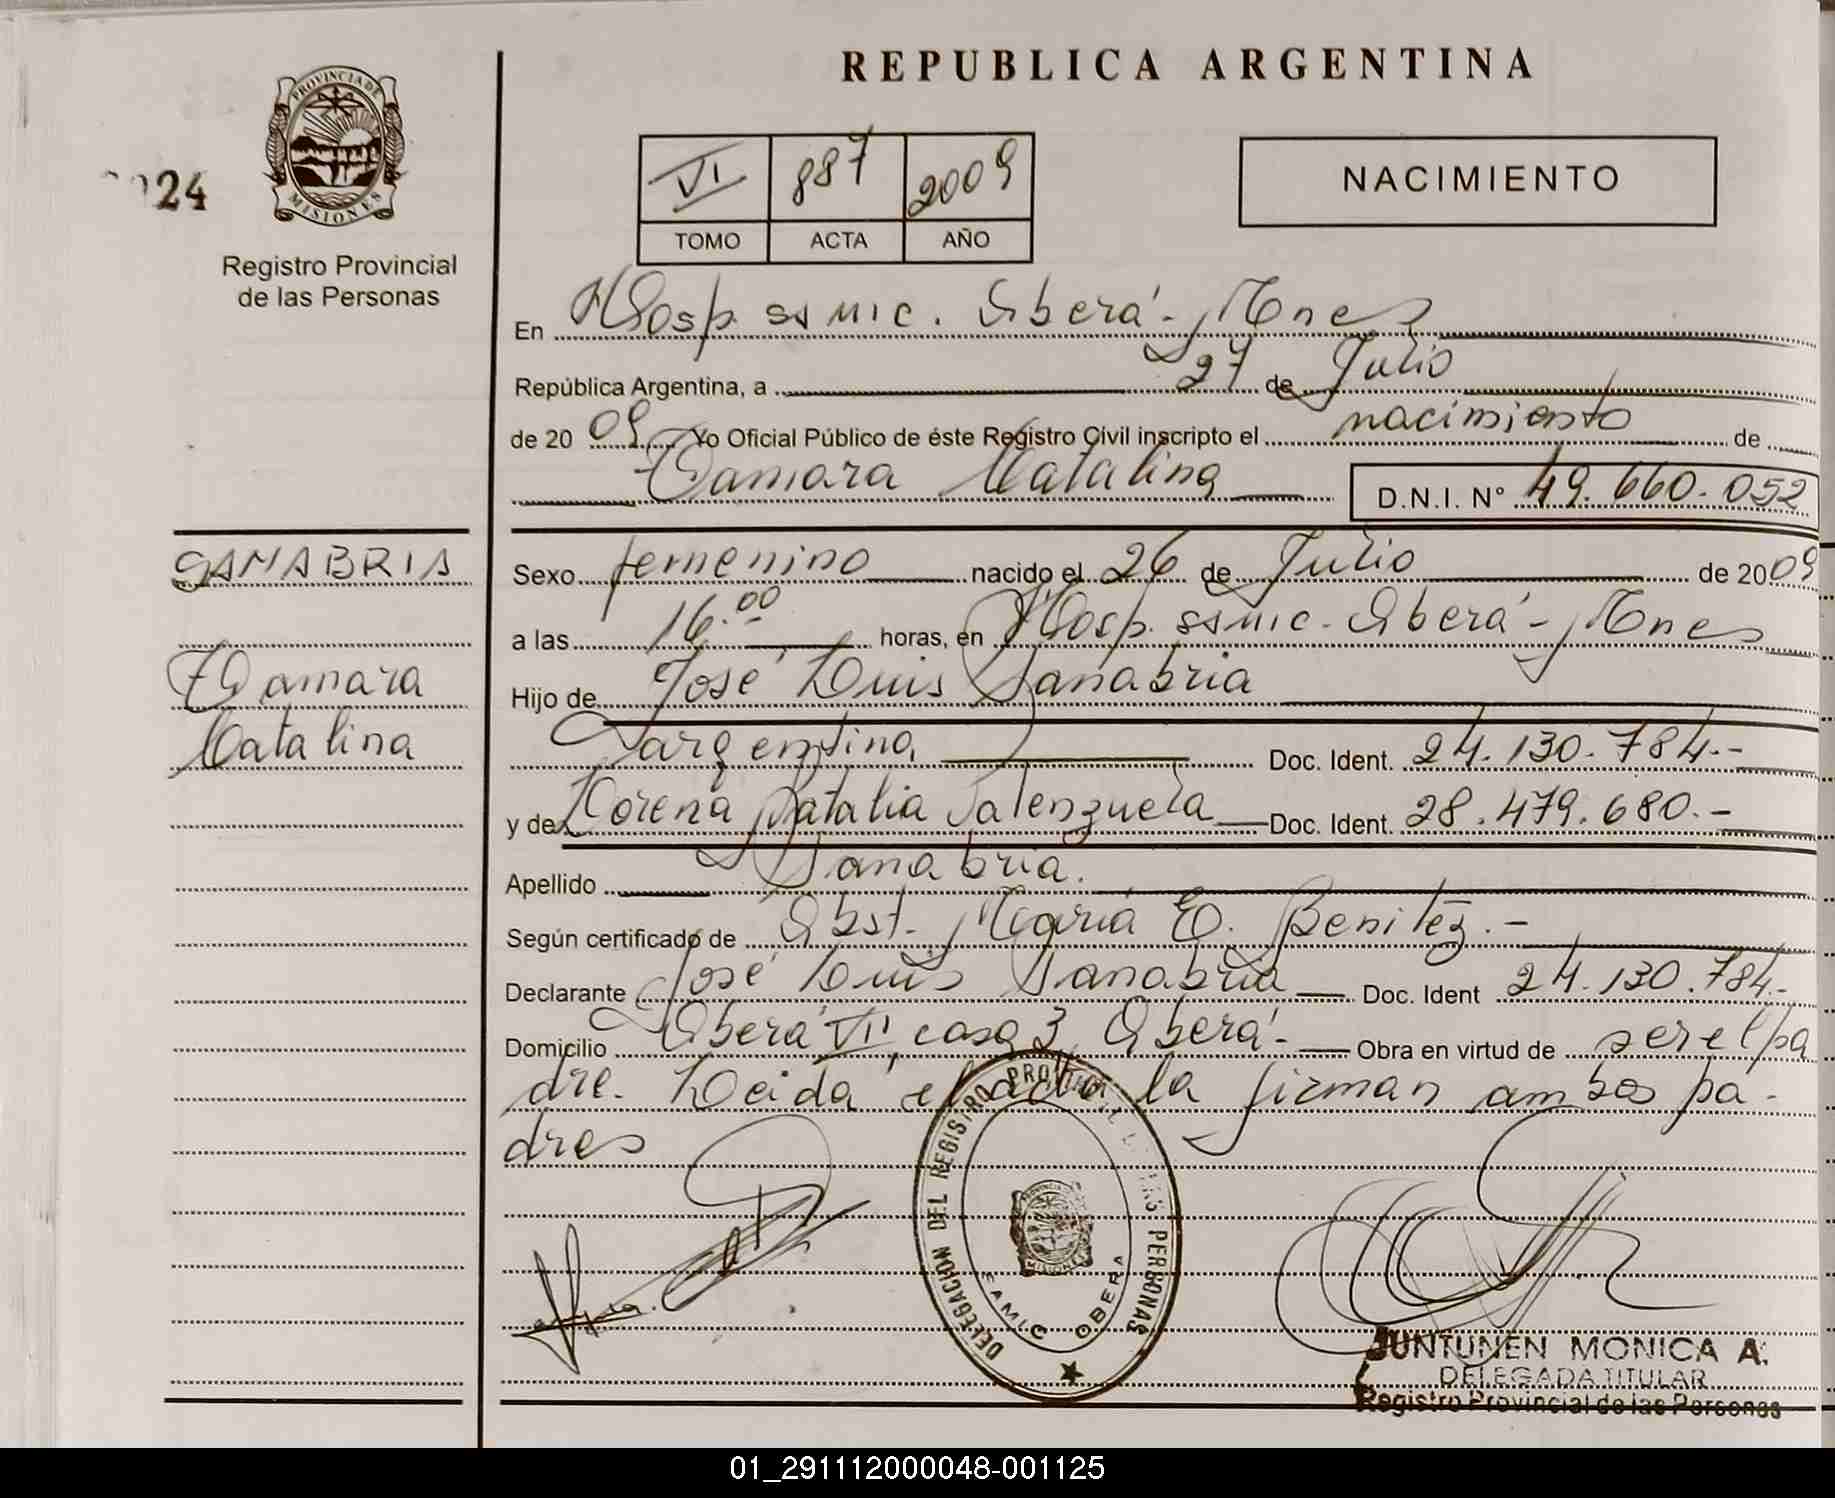 REPUBLICA ARGENTINA
PROVINCIA DE
MISIONES
24
Registro Provincial
de las Personas
VI 887 2009
TOMO ACTA AÑO
NACIMIENTO
En Hosp. ssmic. Oberá - Mnes
República Argentina, a 27 de Julio
de 2009 Yo Oficial Público de éste Registro Civil inscripto el nacimiento de
Thamara Catalina D.N.I. N° 49.660.052
SANABRIA
Thamara
Catalina
Sexo femenino nacido el 26 de Julio de 2009
a las 16.00 horas, en Hosp. ssmic - Oberá - Mnes
Hijo de José Luis Sanabria
argentina Doc. Ident. 24.130.784.-
y de Lorena Natalia Valenzuela Doc. Ident. 28.479.680.-
Apellido Sanabria.
Según certificado de Obst. María E. Benitez.-
Declarante José Luis Sanabria Doc. Ident 24.130.784.-
Domicilio Oberá VII, casa 3, Oberá.- Obra en virtud de ser el pa
dre. Leida el acta la firman ambos pa-
dres
DELEGACION DEL REGISTRO PROVINCIAL DE LAS PERSONAS
MISIONES
SAMIC OBERA
JUNTUNEN MONICA A.
DELEGADA TITULAR
Registro Provincial de las Personas
01_291112000048-001125